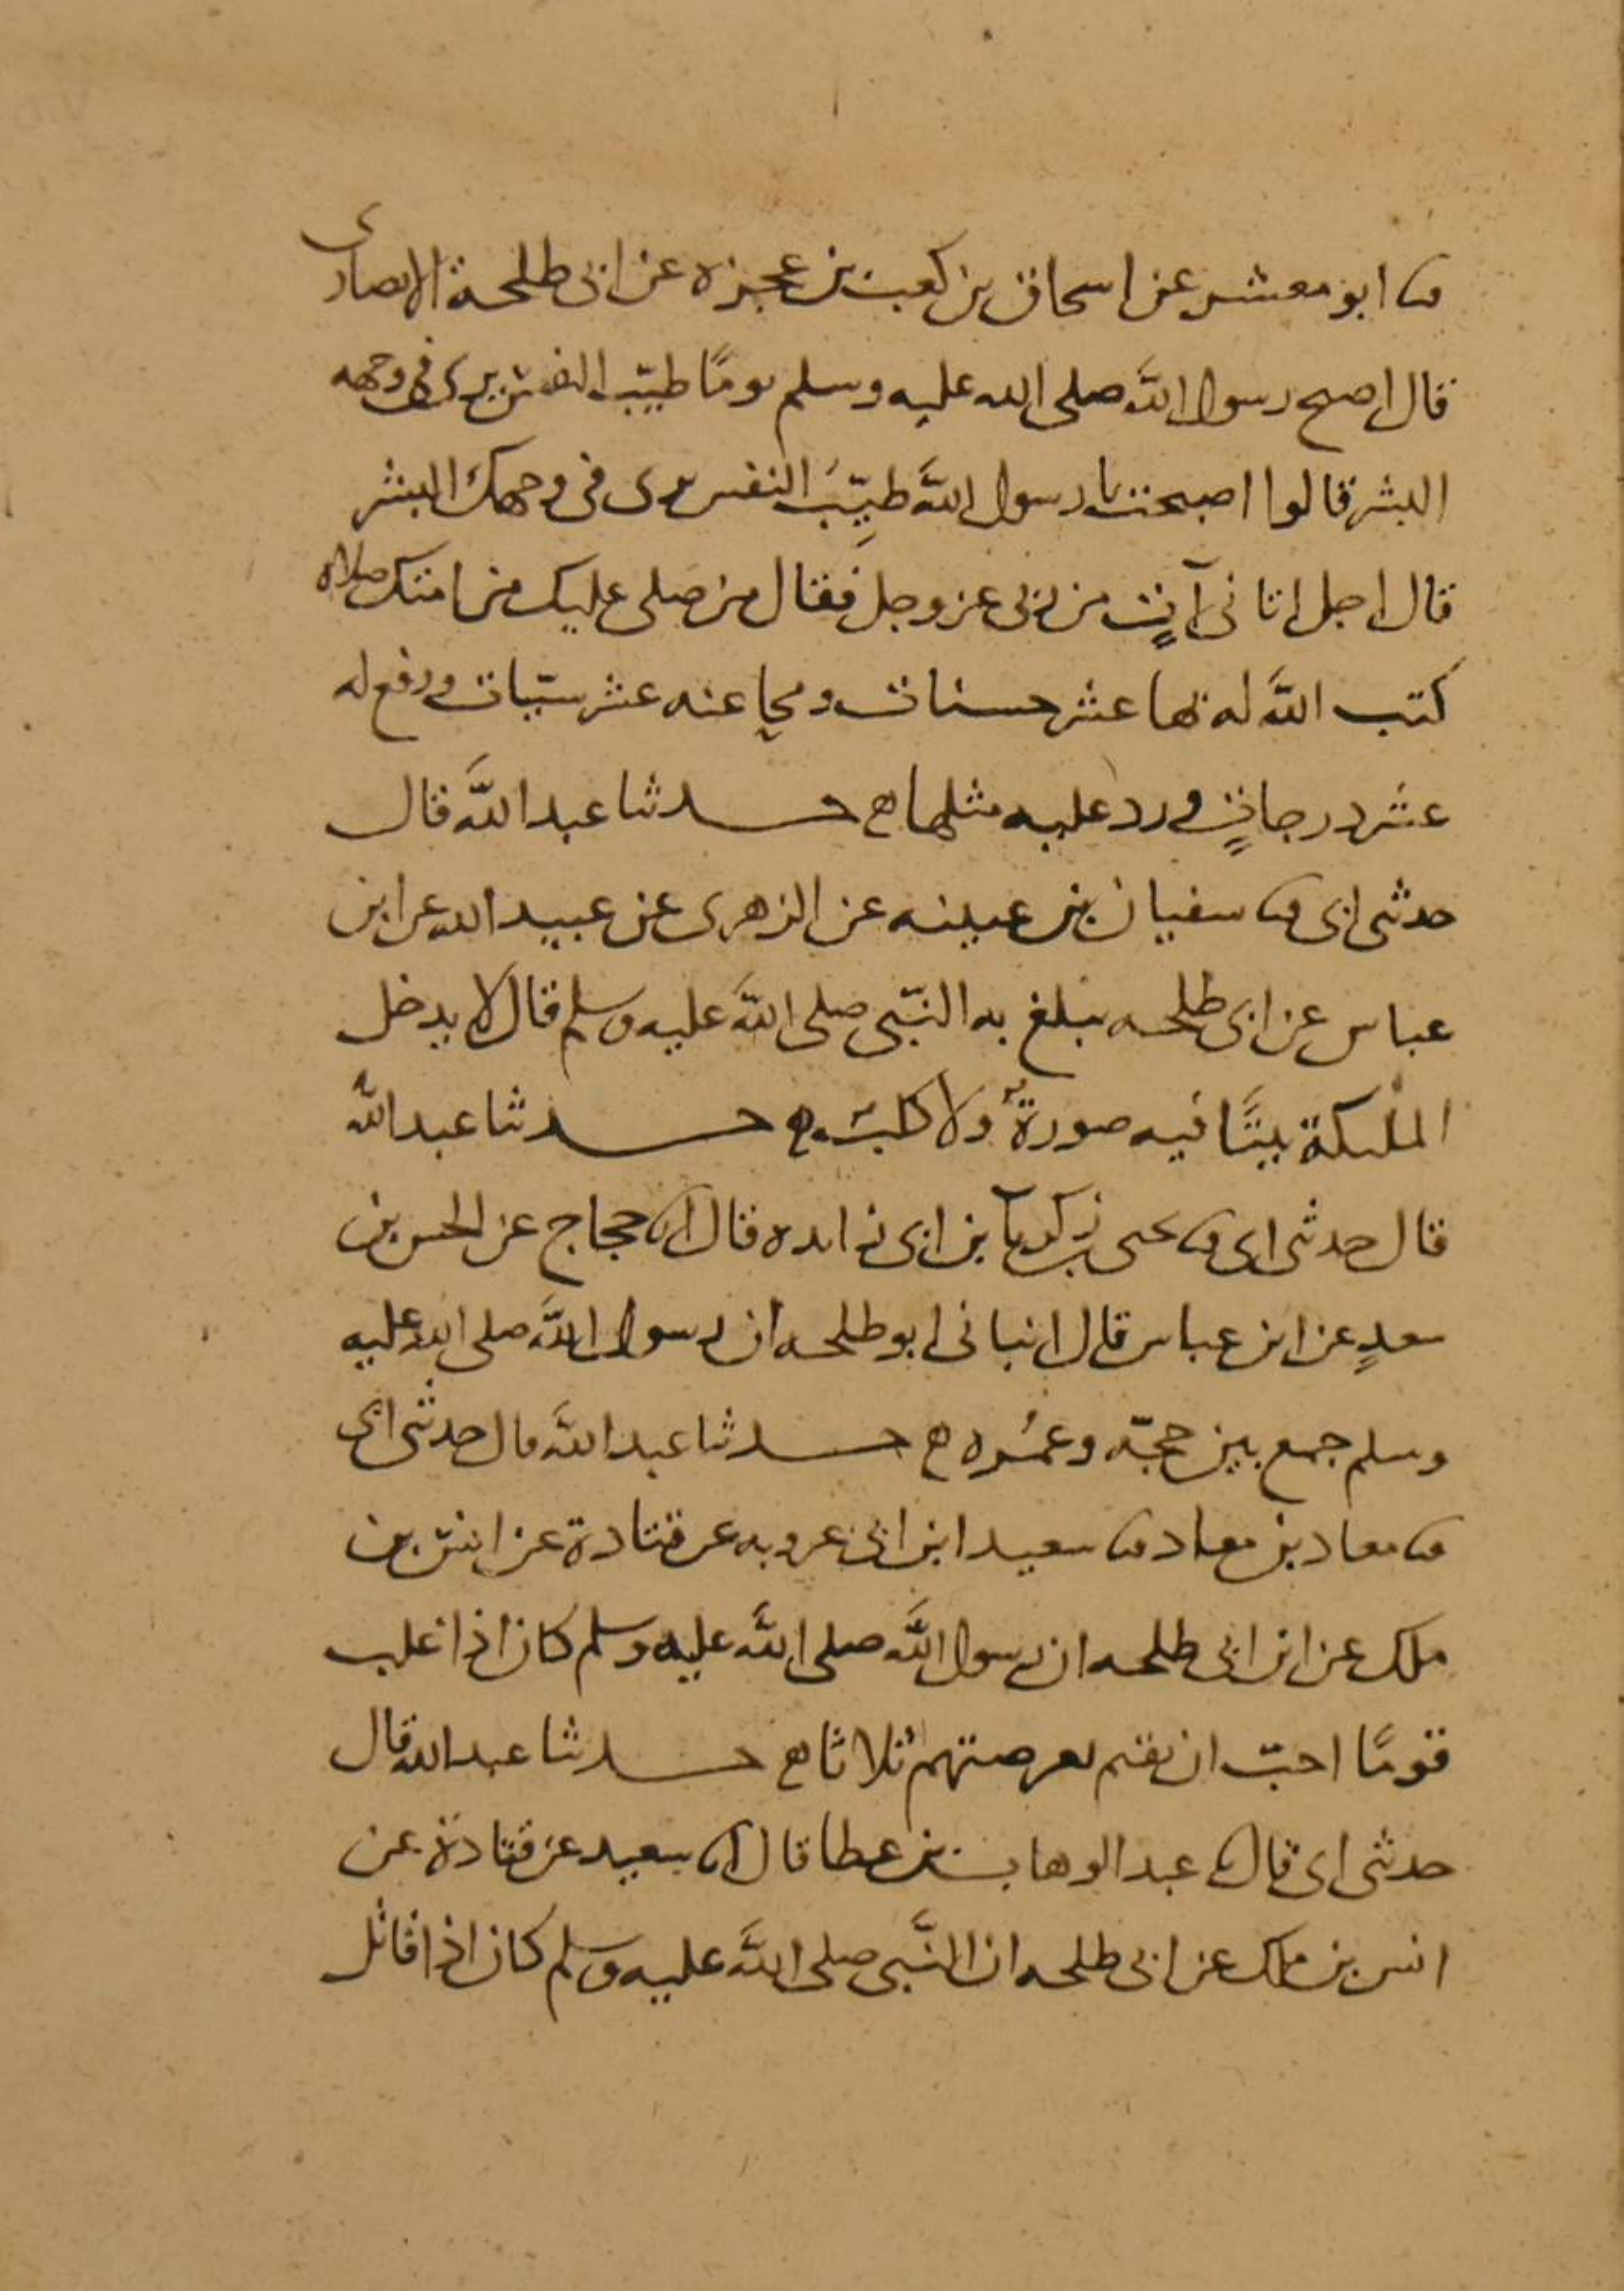 ثنا ابو معشر عن اسحاق بن كعب بن عجرة عن ابى طلحة الانصارى
قال اصبح رسول اللَّه صلى الله عليه وسلم يومًا طيّب النفس يرى فى وجهه
البشر قالوا اصبحت يا رسول اللَّه طيِّبَ النفس يرى فى وجهك البشر
قال اجل اتانى آتٍ من ربى عز وجل فقال من صلى عليك من امتك صلاه
كتب اللَّه له بها عشر حسنات ومحا عنه عشر سيّات ورفع له
عشر درجاتٍ ورد عليه مثلها ه حدثنا عبد اللَّه قال
حدثنى ابى ثنا سفيان بن عيينه عن الزهرى عن عبيد الله عن ابن
عباس عن ابى طلحه يبلغ به النّبى صلى اللَّه عليه وسلم قال لا يدخل
الملئكة بيتًا فيه صورةٌ ولا كلبٌ ه حدثنا عبد اللَّه
قال حدثنى ابى ثنا يحيى بن زكريآ بن ابى زايده قال انا حجاج عن الحسن بن
سعدٍ عن ابن عباس قال انبانى ابو طلحه ان رسول اللَّه صلى الله عليه
وسلم جمع بين حجّه وعمُره ه حدثنا عبد اللَّه قال حدثنى ابى
ثنا معاذ بن معاذ ثنا سعيد ابن ابى عروبه عن قتادة عن انس بن
ملك عن ابن ابى طلحه ان رسول اللَّه صلى اللَّه عليه وسلم كان اذا غلب
قومًا احبّ ان يقيم بعرصتهم ثلاثا ه حدثنا عبد الله قال
حدثنى ابى قال ثنا عبد الوهاب بن عطا قال انا سعيد عن قتادة عن
انس بن ملك عن ابى طلحه ان النَّبى صلى اللَّه عليه وسلم كان اذا قاتل